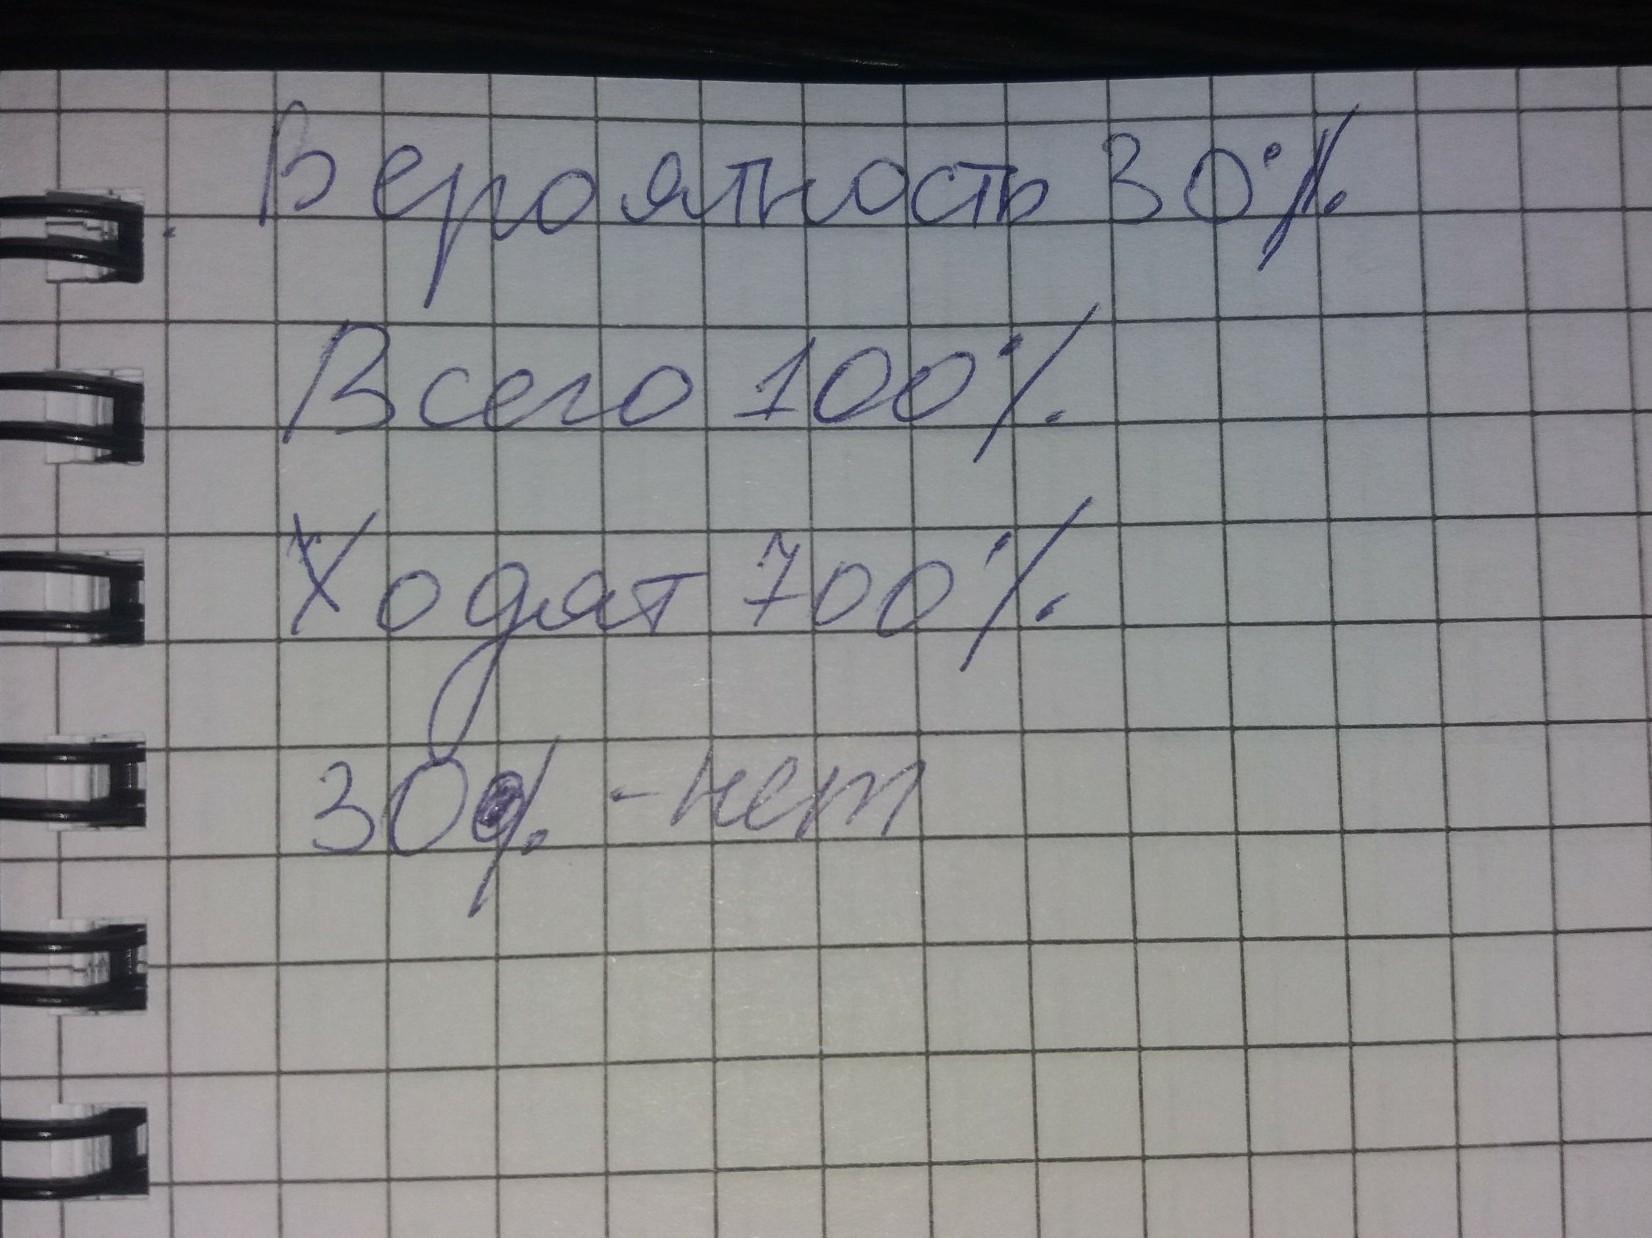 Вероятность 30%
Всего 100%
Ходят 700%
30% - нет